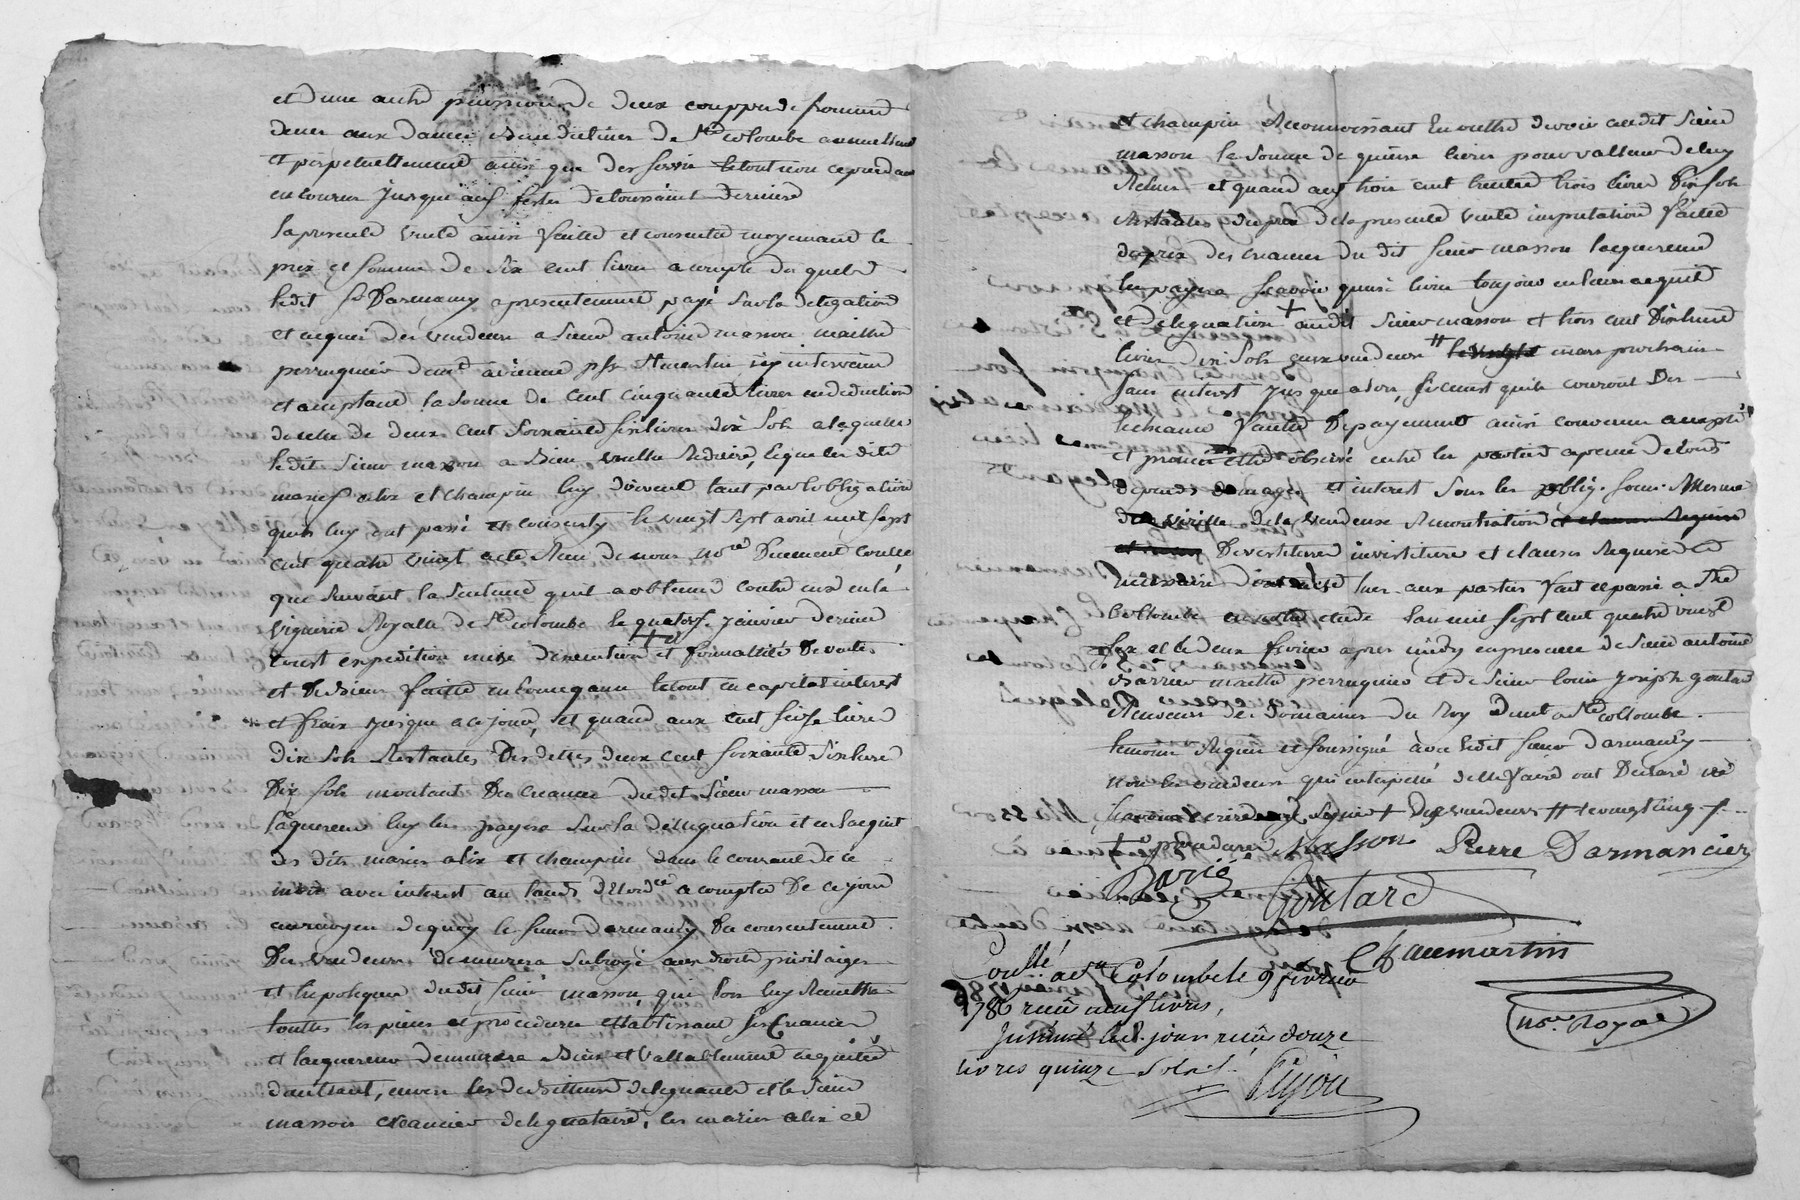 et d'une autre pension de deux couppes de froment
deues aux dames Benedictines de Ste colombe annuellement
et perpetuellement ainsi que des servis letout non cependant
encourus jusqu'aux festes de toussaint derniere
la presente vente ainsi faitte et consentie moyenant le
prix et somme de six cent livres acompte du quel
ledit sr Darmancy a presentement payé sur la delegation
et acquit des vendeurs a sieur antoine masson maittre
perruquier demt a vienne psse St martin icy intervenu
et acceptant la somme de cent cinquante livres en deduction
de celle de deux cent soixante six livres dix sols a laquelle
ledit sieur masson a bien voullu reduire, ce que les dits
mariés alix et champin luy doivent tant par l'obligation
qu'ils luy ont passé et consenty le vingt sept avril mil sept
cent quatre vingt acte Reçu de nous nore Duement controllé
que suivant la sentence qu'il a obtenue contre eux en la
viguerie Royalle de Ste colombe le quatorze janvier dernier
tout expedition mise d'execution et formallité De ventes
et De biens faitte en consequance letout en capital interest
et frais jusque a ce jour, et quand aux cent seize livres
dix sols Restantes Des dittes deux cent soixante six livres
Dix sols montant Des creances dudit sieur masson
l'acquereur luy les payera sur la delleguation et en l'acquit
des dits mariés alix et champin dans le courant de ce
mois avec interest au taux d'Lordce a compter De ce jour
au moyen de quoy le sieur darmancy Du consentement
Des vendeurs demeurera subrogé aux droits privilaiges
et hipoteques dudit sieur masson, que lon luy Remettra
touttes les pieces et procedures ettablissant ses Creances
et l'acquereur demeurera Bien et vallablement acquitté
d'autant, envers les debitteurs deleguants et le sieur
masson creancier delleguataire, les mariés alix et
et champin Reconnoissant En outtre devoir audit sieur
masson la somme de quinze livres pour valleur de luy
Receue et quand aux trois cent trente trois livres Dix sols
Restantes du prix de la presente vente imputation faitte
du prix des creances du dit sieur masson l'acquereur
les payera scavoir quinze livres toujours en leur acquit
et deleguation + audit sieur masson et trois cent Dixhuit
livres dix sols aux vendeurs # mars prochain
sans interest jusque alors, si ce n'est qu'ils couront Des
l'echeance faute De payement ainsi convenu accepté
et promis etre observé entre les parties a peine de tous
depends domages et interest sous les oblig. soum. Serment
virille de la vendeuse Renontiation
Devestiture investiture et clauses Requises
necessaire lues aux parties fait et passé a Ste
Collombe en notre etude l'an mil sept cent quatre vingt
six et le deux fevrier apres midy en presence de sieur antoine
Barrier maittre perruquier et de sieur louis joseph goutard
Receveur des domaines du Roy Demt a Ste Collombe
temoins Requis et soussigné avec ledit sieur darmancy
non les vendeurs qui interpellé de le faire ont Declaré ne
scavoir ecrire ny signer + Des vendeurs # le vingt cinq
+ procedures Masson Pierre Darmancier
Barié Goutard
Chaumartin
nore Royal
Conllé a Ste Colombe le 9 fevrier
1786 reçu neuf livres,
Insinué led. jour reçu douze
livres quinze sols
Pijon